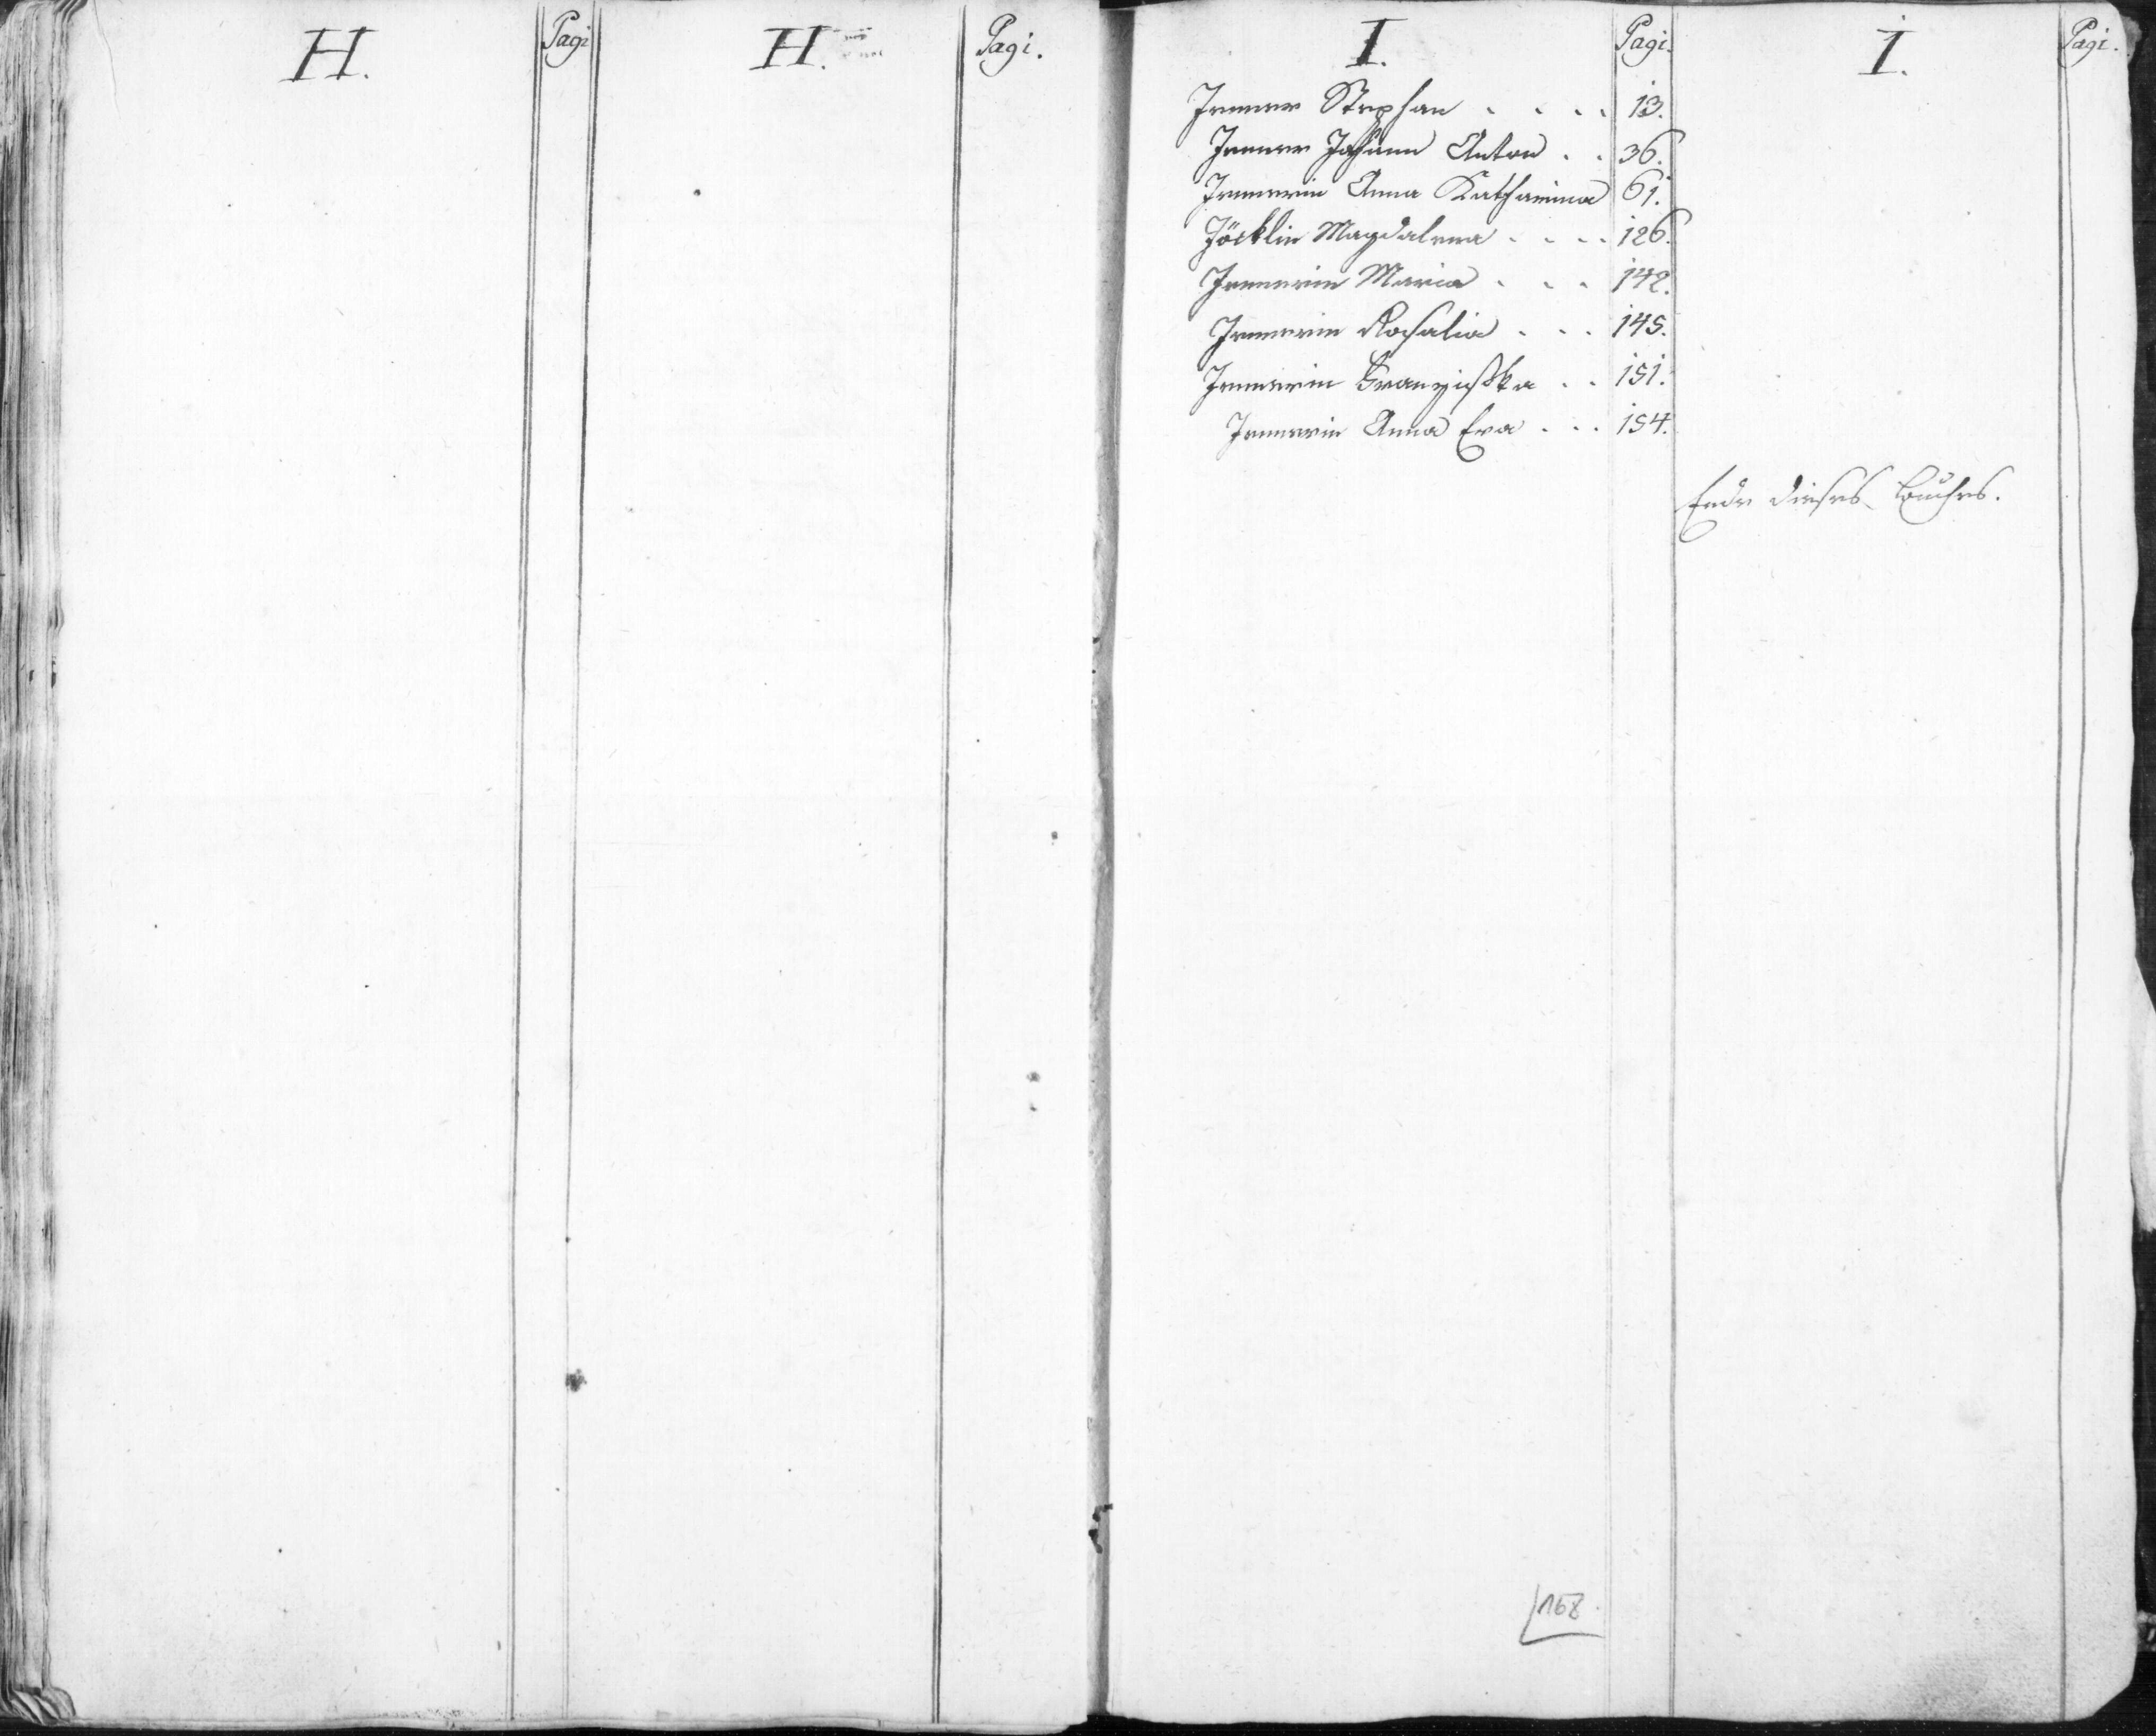 H.
Pagi
H.
Pagi.
I.
Pagi.
Irmer Stephan . . . . 13.
Irmer Johann Anton . . 36.
Irmerin Anna Katharina 61.
Jöcklin Magdalena . . . . 126.
Irmerin Maria . . . 142.
Irmerin Rosalia . . . 145.
Irmerin Franzißka . . 151.
Irmerin Anna Eva . . . 154.
I.
Pagi.
Ende dieses Buches.
168.